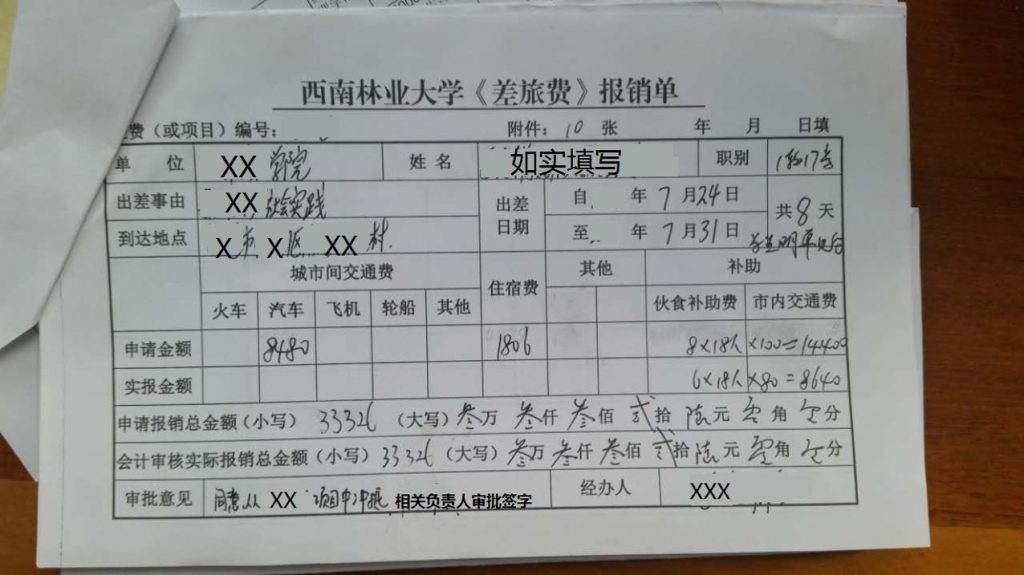 西南林业大学《差旅费》报销单
费（或项目）编号： 附件：10 张 年 月 日填
单 位 XX 学院 姓 名 如实填写 职别
出差事由 XX 社会实践 出差日期 自 年 7 月 24 日 共 8 天
到达地点 X 市 X 区 XX 村 至 年 7 月 31 日
城市间交通费 住宿费 其他 补助
火车 汽车 飞机 轮船 其他 伙食补助费 市内交通费
申请金额 8480 1806 8×18人×100=14400
实报金额 6×18人×80=8640
申请报销总金额（小写） 33326 （大写） 叁万 叁仟 叁佰 贰拾 陆元 零角 零分
会计审核实际报销总金额（小写） 33326 （大写） 叁万 叁仟 叁佰 贰拾 陆元 零角 零分
审批意见 同意从 XX 项目中冲抵 相关负责人审批签字 经办人 XXX